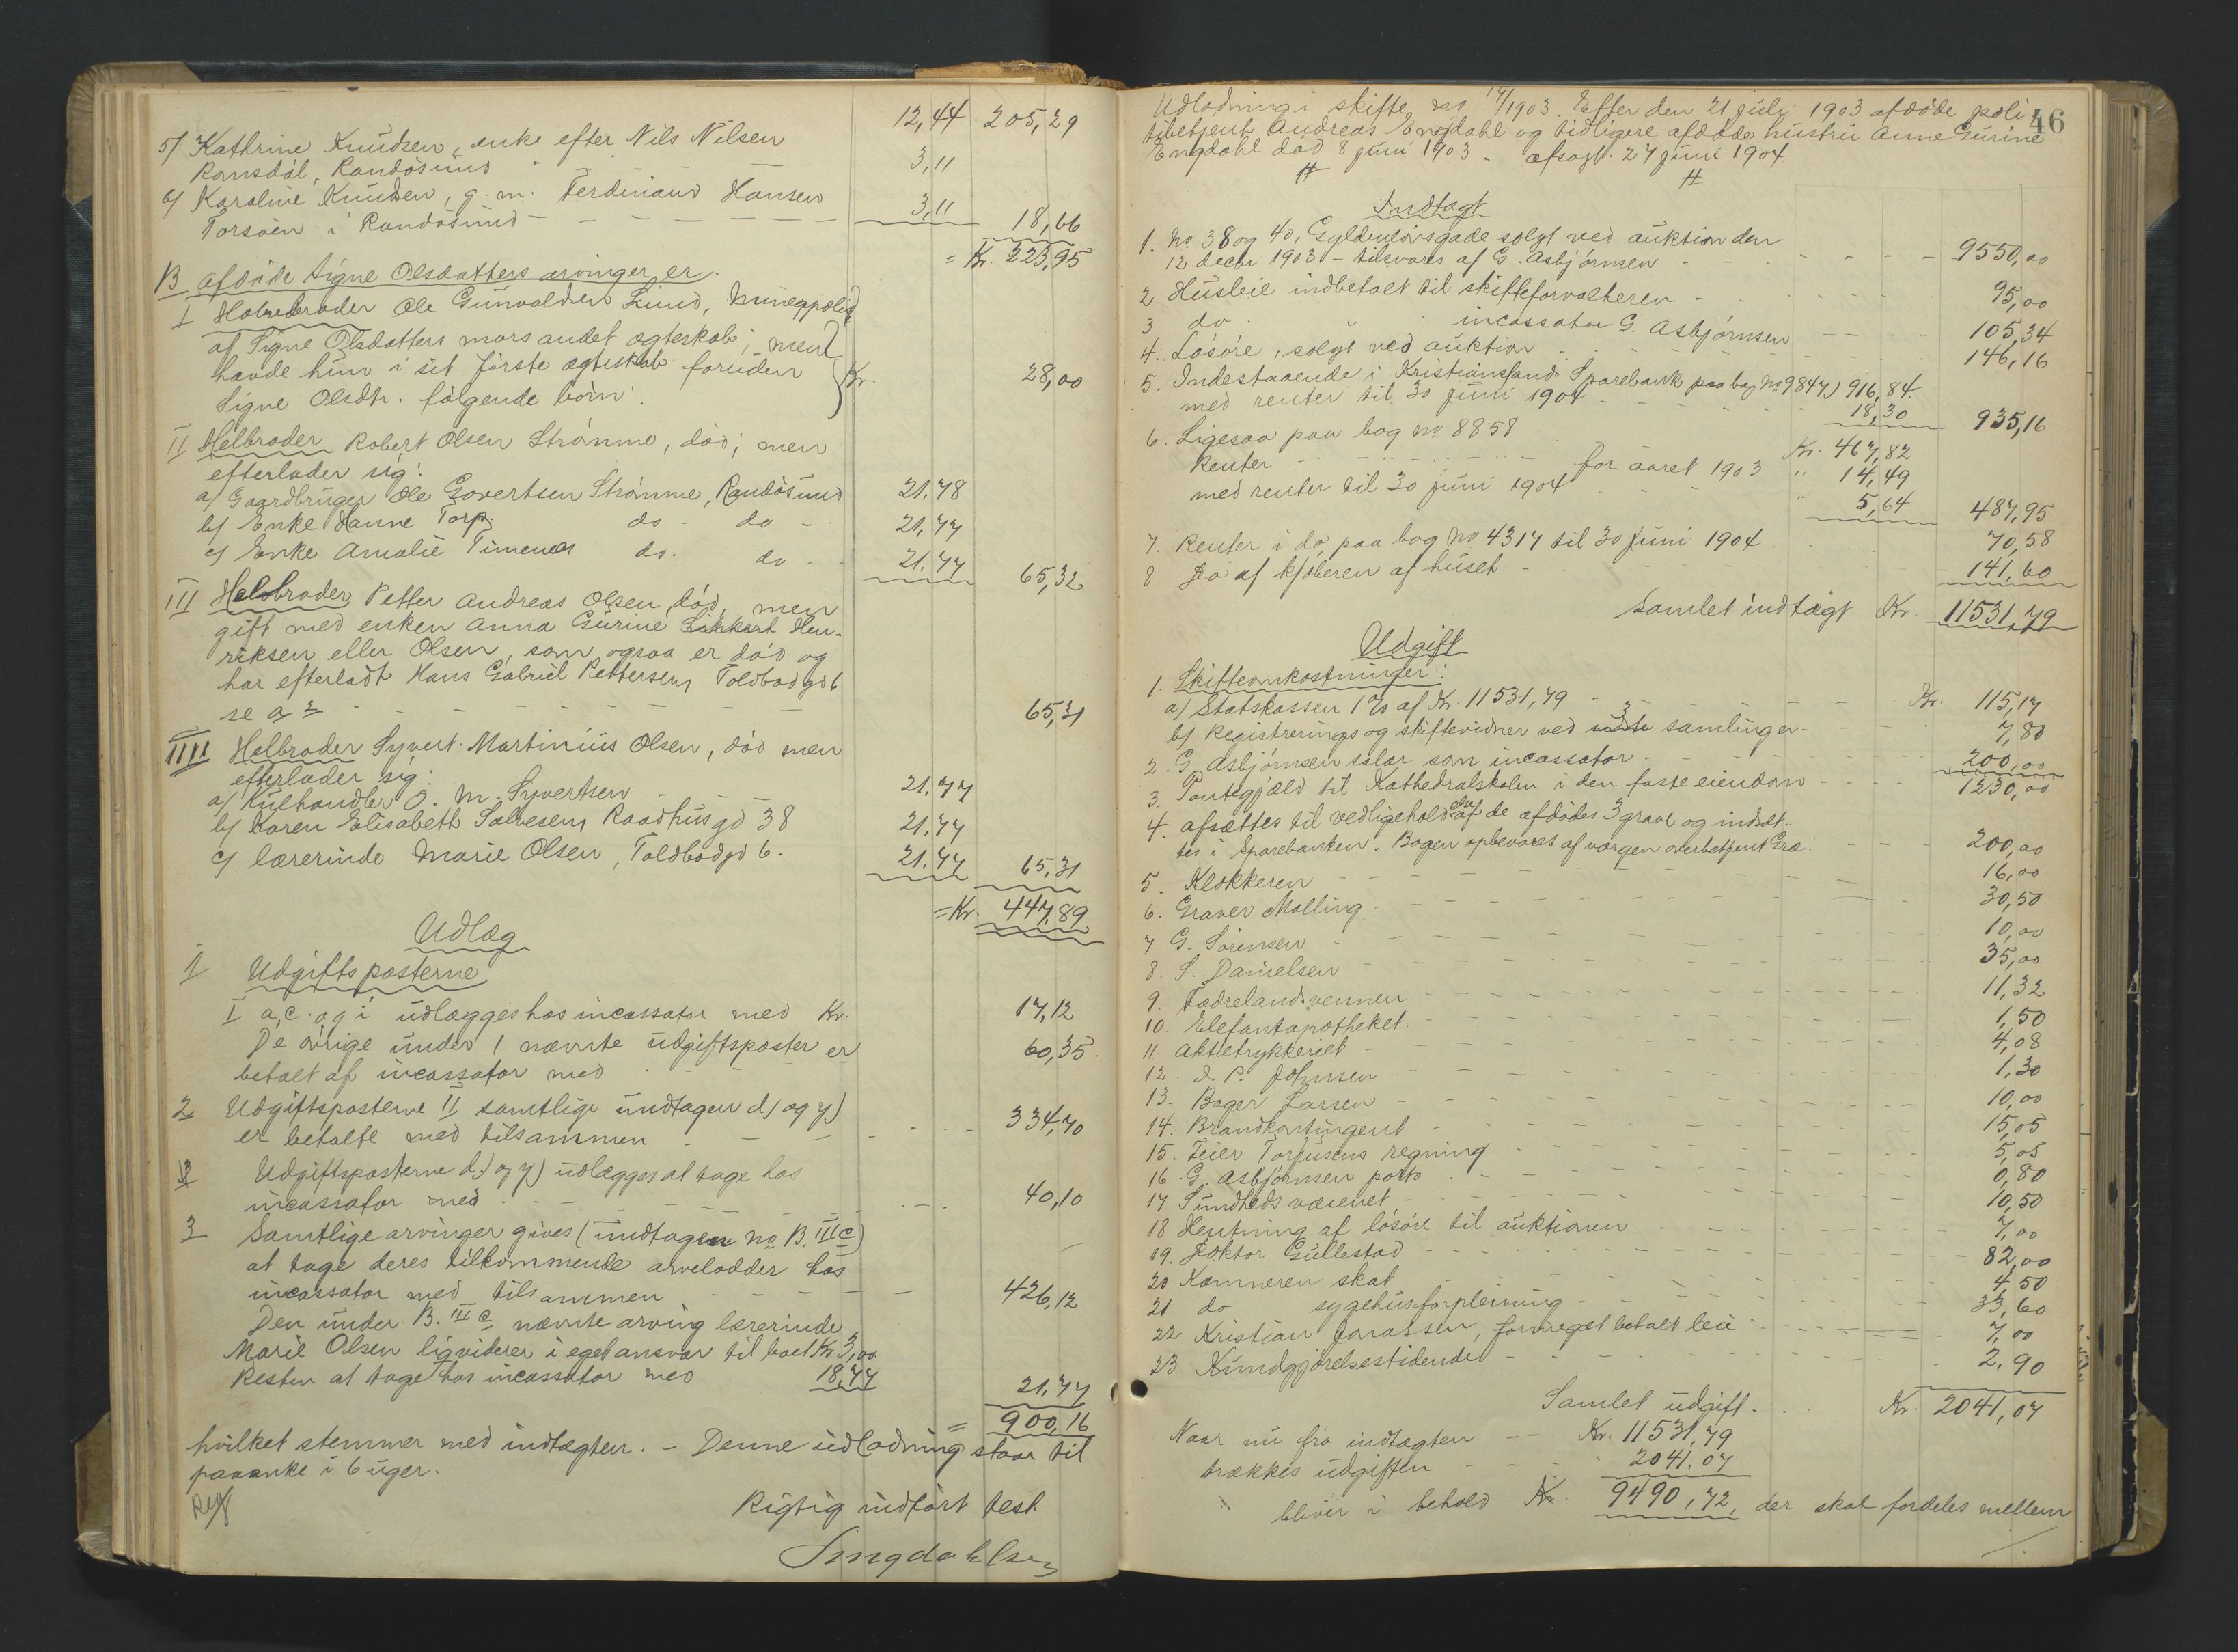 12,44 205,29
5/ Kathrine Knudsen, enke efter Nils Nilsen
Ransdal, Randøsund - — 3,11
6/ Karoline Knudsen, g. m. Ferdinand Hansen
Torsøen i Randøsund - - - — — — 3,11 18,66
= Kr. 223,95
B afdøde Signe Olsdatters arvinger er.
I Halvebroder Ole Gunvaldsen Lund, Mineappolis
af Signe Olsdatters mors andet ægteskab; men
havde hun i sit første ægteskab foruden Kr. 28,00
Signe Olsdtr. følgende børn:
II Helbroder Robert Olsen Strømme, død; men
efterlader sig:
a/ Gaardbruger Ole Govertsen Strømme, Randøsund 21,78
b/ Enke Hanne Torp do - do - 21,77
c/ Enke Amalie Timenes do. do - 21,77 65,32
III Helbroder Petter Andreas Olsen, død, men
gift med enken Anna Gurine Hen-
riksen eller Olsen, som ogsaa er død og
har efterladt Hans Gabriel Pettersen, Toldbodgd 6
se a 3 - - - - - - - 65,31
IIII Helbroder Syvert Martinius Olsen, død men
efterlader sig:
a/ Kulhandler O. M. Syvertsen - - - 21,77
b/ Karen Elisabeth Salvesen, Raadhusgd 38 21,77
c/ lærerinde Marie Olsen, Toldbodgd 6. 21,77 65,31
= Kr. 447,89
Udlæg
1 Udgiftsposterne
I a, c. og i udlægges hos incassator med Kr. 17,12
De øvrige under 1 nævnte udgiftsposter er
betalt af incassator med - - - - 60,35
2 Udgiftsposterne II samtlige undtagen d) og y)
er betalte med tilsammen - — — - - - 334,70
Udgiftsposterne d) og y) udlægges at tage hos
incassator med - - - - - - 40,10
3 Samtlige arvinger gives (undtagen no B. III c)
at tage deres tilkommende arvelodder hos
incassator med tilsammen - - - — — 426,12
Den under B. III c nævnte arving lærerinde
Marie Olsen ligviderer i eget ansvar til boet Kr 3,00
Resten at tage hos incassator med 18,77 21,77
= 900,16
hvilket stemmer med indtægten. - Denne udlodning staar til
paaanke i 6 uger.
Rigtig indført test.
46
Udlodning i skifte no 19/1903. Efter den 21 july 1903 afdøde poli-
tibetjent Andreas Engdahl og tidligere afdøde hustru Anne Gurine
Engdahl død 8 juni 1903. afsagt 27 juni 1904.
Indtægt
1. No 38 og 40, Gyldenløvsgade solgt ved auktion den
12 decbr 1903 - tilsvares af G. Asbjørnsen - - - - - - 9550,00
2 Husleie indbetalt til skifteforvalteren - - - - - 95,00
3 do. " incassator G. Asbjørnsen — — - 105,34
4. Løsøre, solgt ved auktion - - - - - - 146,16
5. Indestaaende i Kristianssands Sparebank paa bog No 9847) 916,84
med renter til 30 juni 1904 - - - - 18,30 935,16
6. Ligesaa paa bog no. 8858 Kr. 467,82
Renter - - - - - for aaret 1903 " 14,49
med renter til 30 juni 1904 - - - " 5,64 487,95
7. Renter i do, paa bog No 4317 til 30 juni 1904 - - - 70,58
8 do af kjøberen af huset - - - - - - 141,60
Samlet indtægt Kr. 11531,79
Udgift
1. Skifteomkostninger:
a) Statskassen 1% af Kr. 11531,79 - - - - - Kr. 115,17
b) Registrerings og skiftevidner ved 3 samlinger - - - 7,80
2. G. Asbjørnsen salær som incassator - - - - 200,00
3. Pantegjæld til Kathedralskolen i den faste eiendom - - - 1230,00
4. Afsættes til vedligehold af de afdødes 3 grave og indsæt-
tes i Sparebanken. Bogen opbevares af værgen overbetjent Gra. - - - 200,00
5. Klokkeren - - - - - - - - - 16,00
6. Graver Malling - - - - - - - - 30,50
7 G. Sørensen - - - - - - - - 10,00
8. S. Danielsen - - - - - - - - 35,00
9. Fædrelandsvennen - - - - - - - - 11,32
10. Elefantapotheket - - - - - - - - 1,50
11 Aktietrykkeriet - - - - - - - - 4,08
12. J. P. Johnsen - - - - - - - - 1,30
13. Bager Larsen - - - - - - - - 10,00
14. Brandkontingent - - - - - - - - 15,05
15. Feier Torjusens regning - - - - - - 5,05
16. G. Asbjørnsen porto - - - - - - 0,80
17 Sundhedsvæsenet - - - - - - - 10,50
18 Hentning af løsøre til auktionen - - - - - 7,00
19. Doktor Gullestad - - - - - - - 82,00
20 Kæmneren skat - - - - - - - 4,50
21 do sygehusforpleining - - - - - 33,60
22 Kristian Jonassen, formeget betalt leie - - - - 7,00
23 Kundgjørelsestidende - - - - - - - 2,90
Samlet udgift - . . Kr. 2041,07
Naar nu fra indtægten - - Kr. 11531,79
trækkes udgiften - - - 2041,07
bliver i behold Kr. 9490,72, der skal fordeles mellem